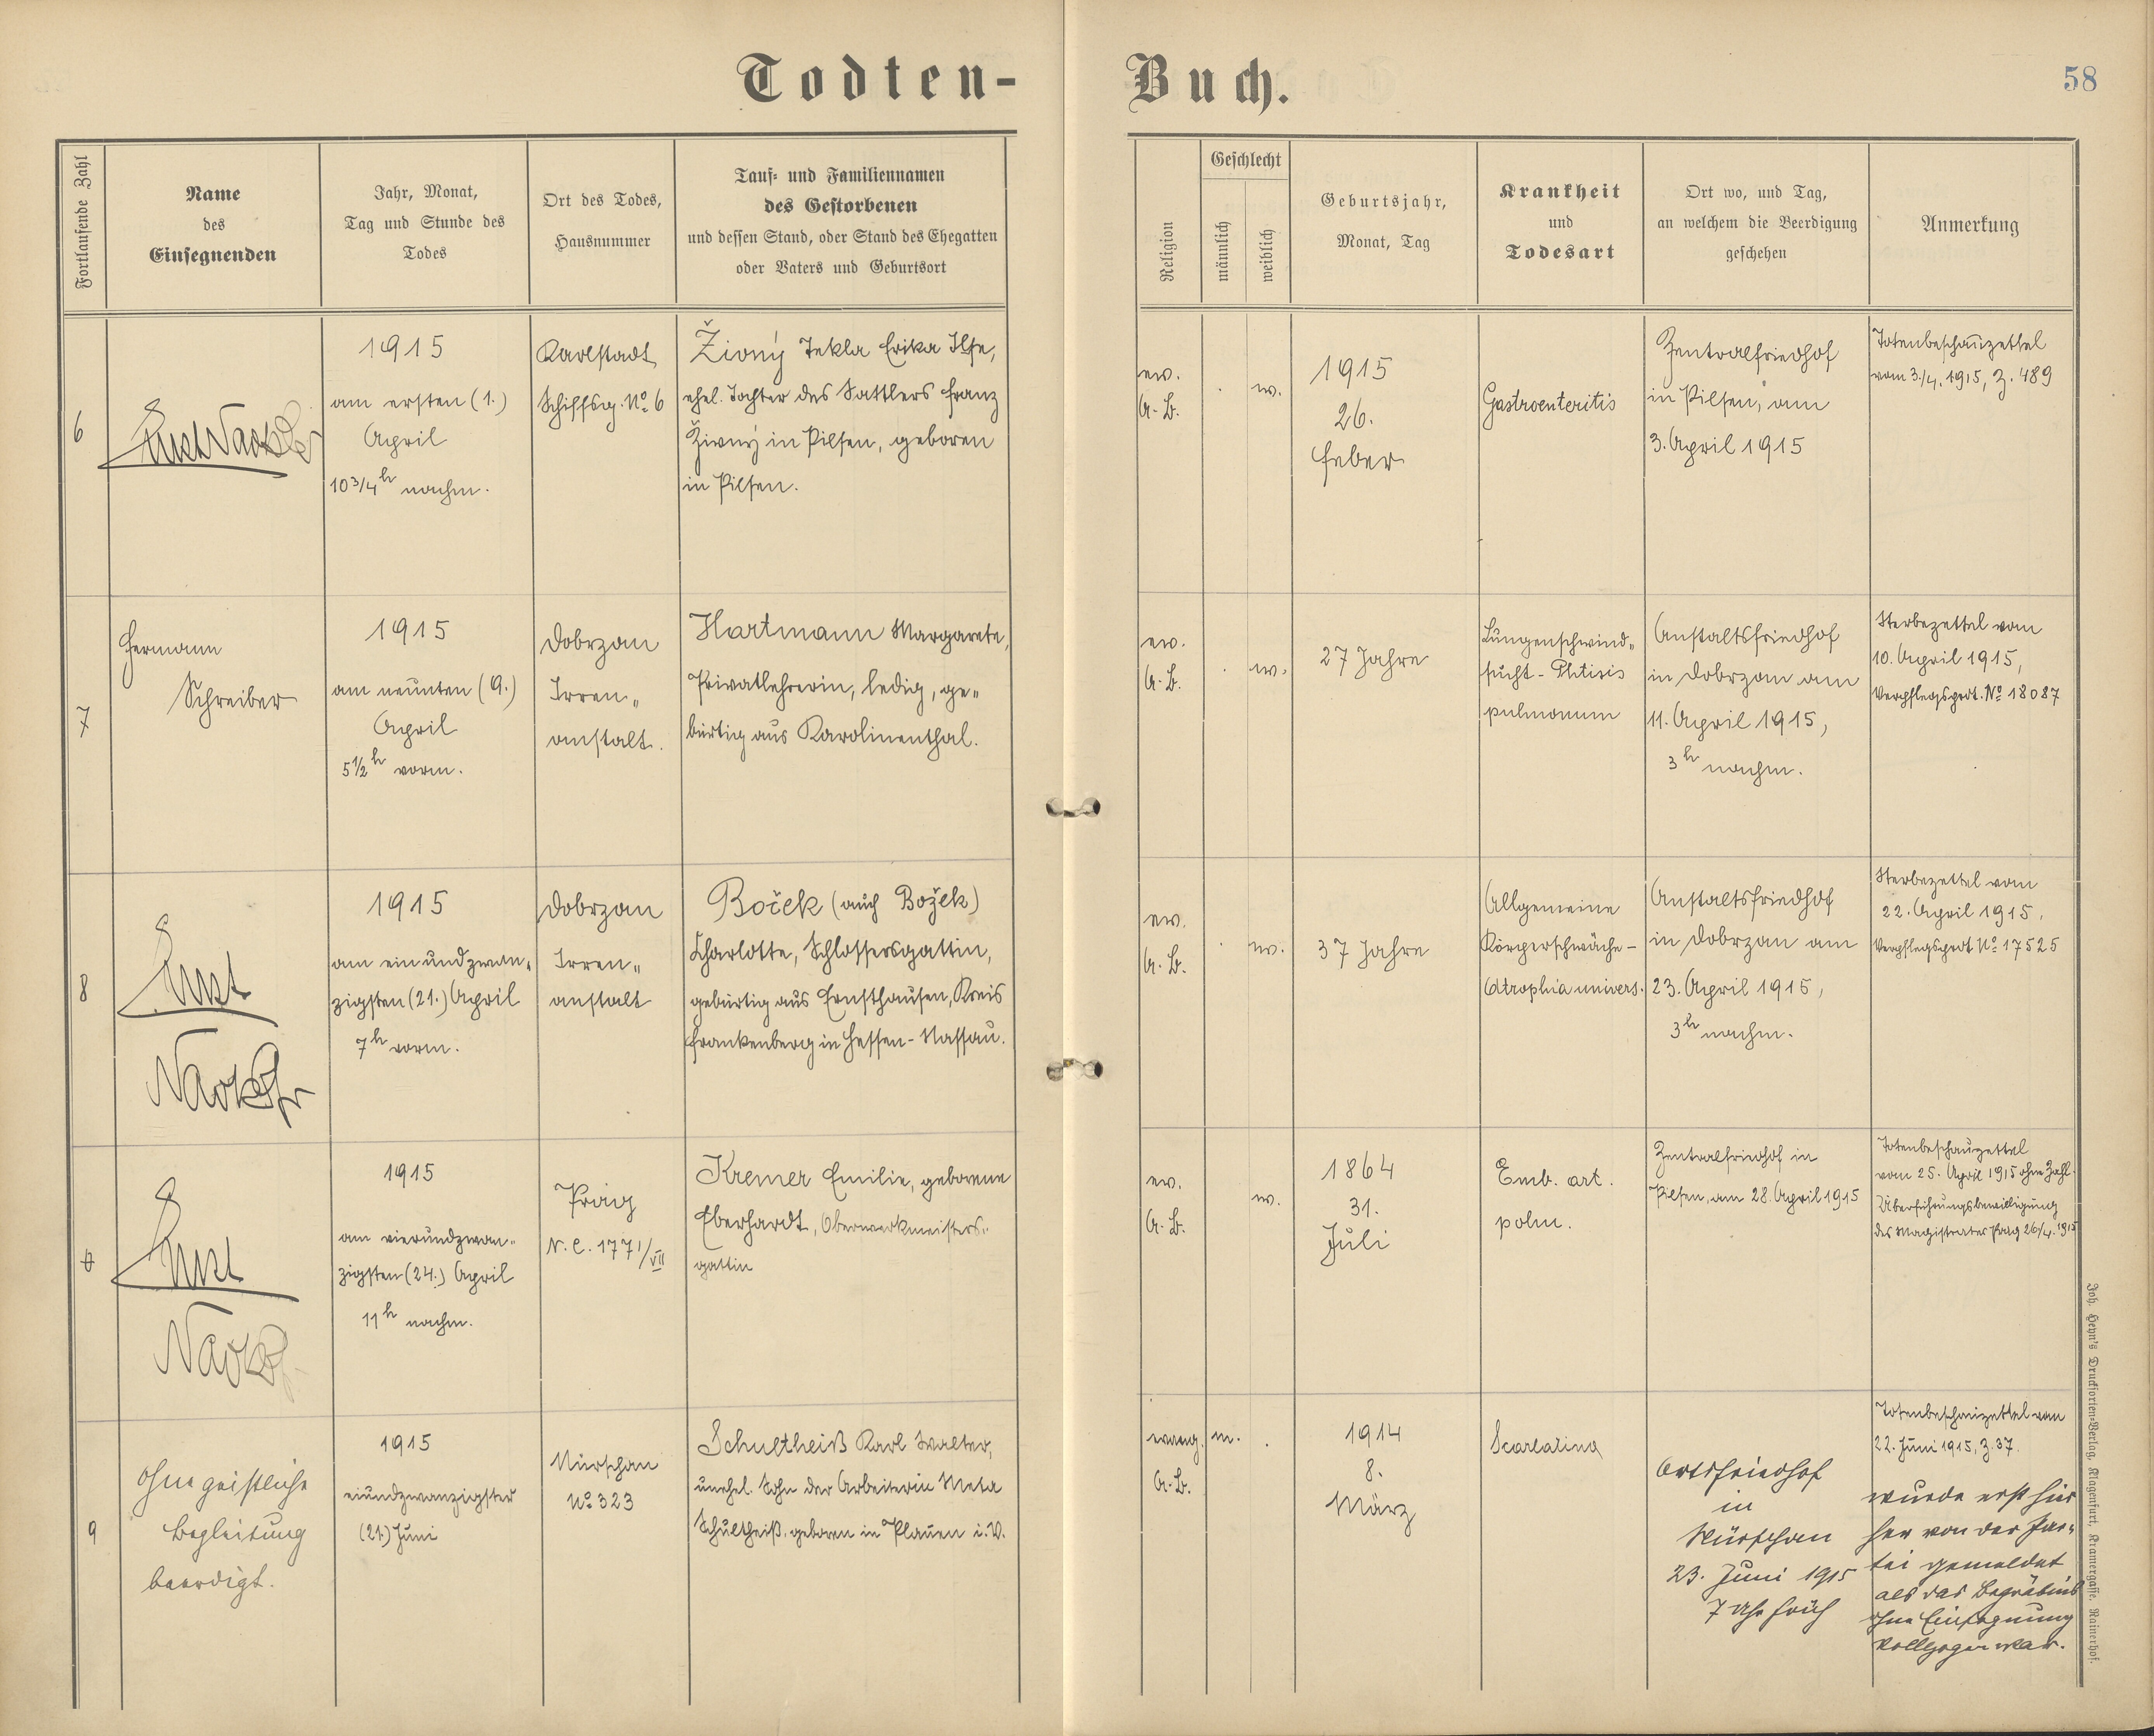 Todten-Buch.
58
Fortlaufende Zahl
Name
des
Einsegnenden
Jahr, Monat,
Tag und Stunde des
Todes
Ort des Todes,
Hausnummer
Tauf- und Familiennamen
des Gestorbenen
und dessen Stand, oder Stand des Ehegatten
oder Vaters und Geburtsort
Religion
Geschlecht
männlich
weiblich
Geburtsjahr,
Monat, Tag
Krankheit
und
Todesart
Ort wo, und Tag,
an welchem die Beerdigung
geschehen
Anmerkung
6
1915
am ersten (1.)
April
10 3/4 h nachm.
Karlstadt
Schiffsg. No 6
Živný Tekla Erika Ilse,
ehel. Tochter des Sattlers Franz
Živný in Pilsen, geboren
in Pilsen.
ev.
A. B.
w.
1915
26.
Feber
Gastroenteritis
Zentralfriedhof
in Pilsen, am
3. April 1915
Totenbeschauzettel
vom 3./4. 1915, Z. 489
7
Hermann
Schreiber
1915
am neunten (9.)
April
5 1/2 h vorm.
Dobrzan
Irren„
anstalt.
Hartmann Margarete,
Privatlehrerin, ledig, ge„
bürtig aus Karolinenthal.
ev.
A. B.
w.
27 Jahre
Lungenschwind„
sucht - Phtisis
pulmonum
Anstaltsfriedhof
in Dobrzan am
11. April 1915,
3 h nachm.
Sterbezettel vom
10. April 1915,
Verpflegsprot. No 18087
8
Ernst
1915
am einundzwan„
zigsten (21.) April
7 h vorm.
Dobrzan
Irren„
anstalt
Boček (auch Božek)
Charlotte, Schlossersgattin,
gebürtig aus Ernsthausen, Kreis
Frankenberg in Hessen-Nassau.
ev.
A. B.
w.
37 Jahre
Allgemeine
Körperschwäche -
Atrophia univers.
Anstaltsfriedhof
in Dobrzan am
23. April 1915,
3 h nachm.
Sterbezettel vom
22. April 1915,
Verpflegsprot No 17525
Ernst
1915
am vierundzwan„
zigsten (24.) April
11 h nachm.
Prag
N. C. 1771/VII
Kremer Emilie, geborene
Eberhardt, Oberwerkmeisters„
gattin
ev.
A. B.
w.
1864
31.
Juli
Emb. art.
polm.
Zentralfriedhof in
Pilsen, am 28. April 1915
Totenbeschauzettel
vom 25. April 1915 ohne Zahl.
Überführungsbewilligung
des Magistrates Prag 26/4. 1915
9
Ohne geistliche
Begleitung
beerdigt.
1915
einundzwanzigster
(21.) Juni
Nürschan
No 323
Schultheiß Karl Walter,
unehel. Sohn der Arbeiterin Meta
Schultheiß, geboren in Plauen i. V.
evang.
A. B.
m.
1914
8.
März
Scarlatina
Ortsfriedhof
in
Nürschan
23. Juni 1915
7 Uhr früh
Totenbeschauzettel vom
22. Juni 1915, Z. 37.
wurde erst hier
her von der Par„
tei gemeldet
als das Begräbnis
ohne Einsegnung
vollzogen war.
Joh. Heyn's Drucksorten-Verlag, Klagenfurt, Kramergasse, Rainerhof.